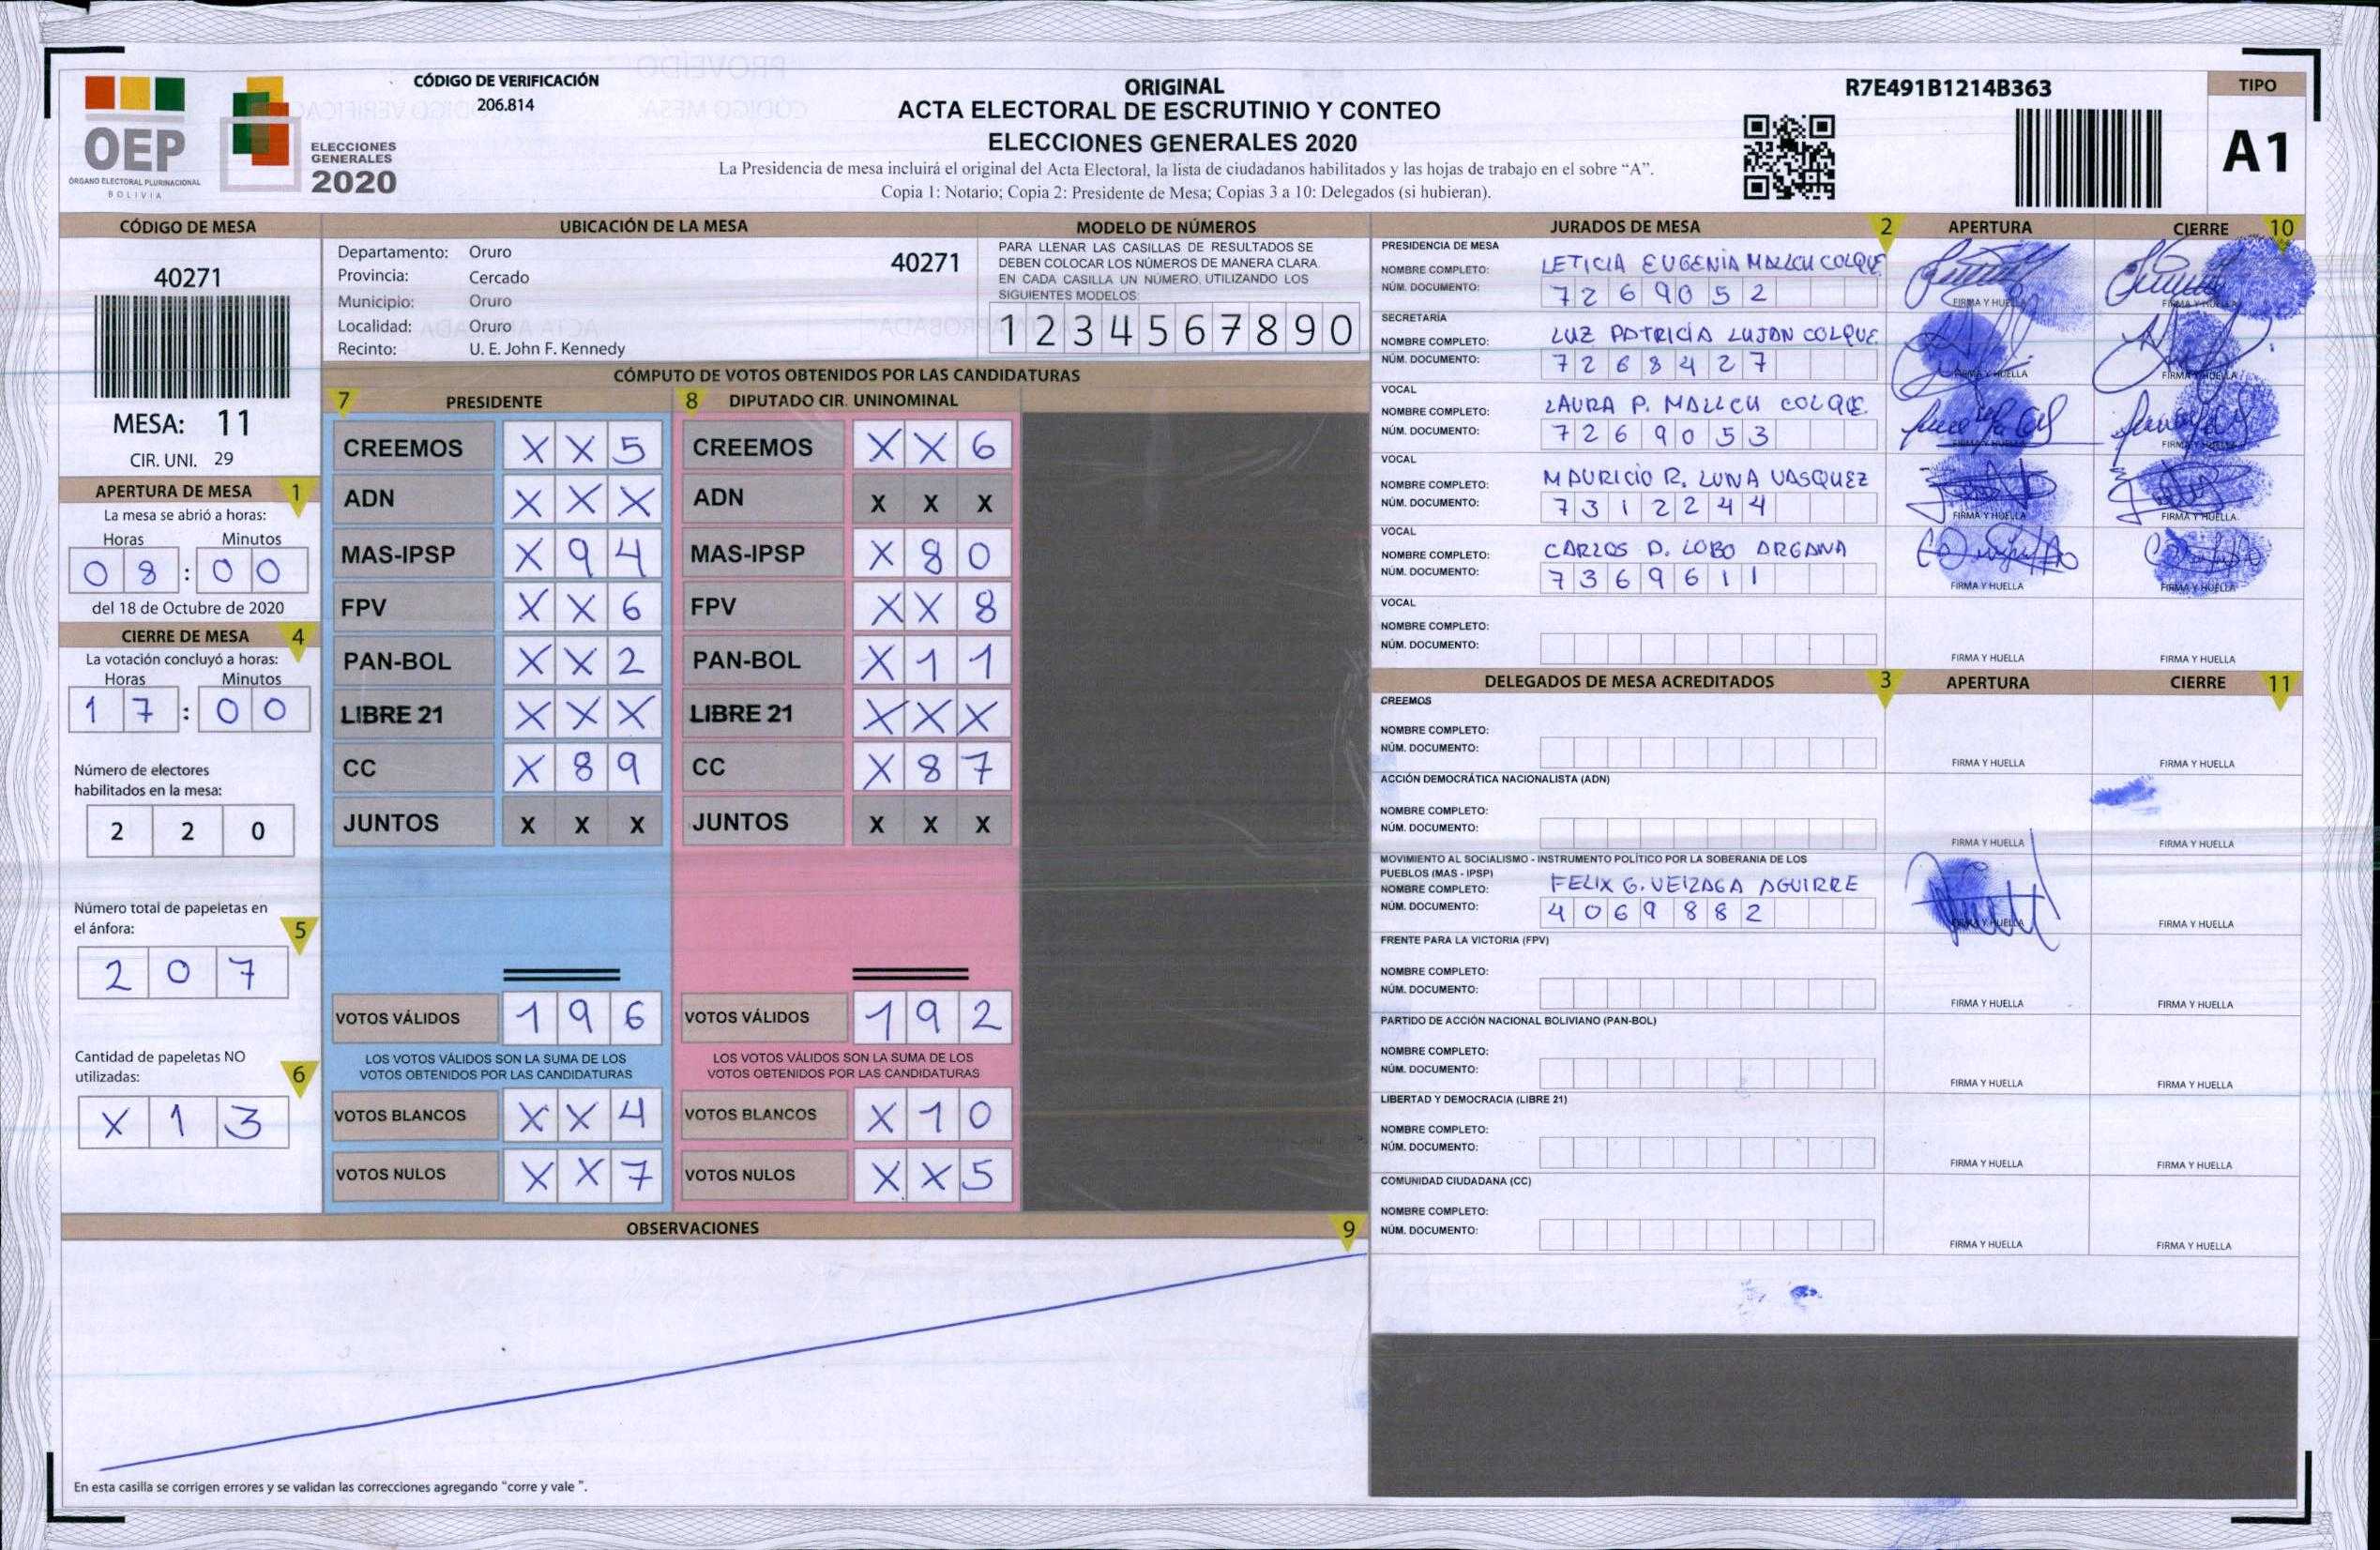 CÓDIGO DE VERIFICACIÓN
206.814
OEP
ÓRGANO ELECTORAL PLURINACIONAL
BOLIVIA
ELECCIONES
GENERALES
2020
ORIGINAL
ACTA ELECTORAL DE ESCRUTINIO Y CONTEO
ELECCIONES GENERALES 2020
La Presidencia de mesa incluirá el original del Acta Electoral, la lista de ciudadanos habilitados y las hojas de trabajo en el sobre “A”.
Copia 1: Notario; Copia 2: Presidente de Mesa; Copias 3 a 10: Delegados (si hubieran).
R7E491B1214B363
TIPO
A1
CÓDIGO DE MESA
40271
MESA: 11
CIR. UNI. 29
APERTURA DE MESA 1
La mesa se abrió a horas:
Horas Minutos
08:00
del 18 de Octubre de 2020
CIERRE DE MESA 4
La votación concluyó a horas:
Horas Minutos
17:00
Número de electores
habilitados en la mesa:
2 2 0
Número total de papeletas en
el ánfora: 5
2 0 7
Cantidad de papeletas NO
utilizadas: 6
X 1 3
UBICACIÓN DE LA MESA
Departamento: Oruro
40271
Provincia: Cercado
Municipio: Oruro
Localidad: Oruro
Recinto: U. E. John F. Kennedy
MODELO DE NÚMEROS
PARA LLENAR LAS CASILLAS DE RESULTADOS SE
DEBEN COLOCAR LOS NÚMEROS DE MANERA CLARA
EN CADA CASILLA UN NÚMERO, UTILIZANDO LOS
SIGUIENTES MODELOS:
1 2 3 4 5 6 7 8 9 0
CÓMPUTO DE VOTOS OBTENIDOS POR LAS CANDIDATURAS
7 PRESIDENTE 8 DIPUTADO CIR. UNINOMINAL
CREEMOS X X 5 CREEMOS X X 6
ADN X X X ADN X X X
MAS-IPSP X 9 4 MAS-IPSP X 8 0
FPV X X 6 FPV X X 8
PAN-BOL X X 2 PAN-BOL X 1 1
LIBRE 21 X X X LIBRE 21 X X X
CC X 8 9 CC X 8 7
JUNTOS X X X JUNTOS X X X
VOTOS VÁLIDOS 1 9 6 VOTOS VÁLIDOS 1 9 2
LOS VOTOS VÁLIDOS SON LA SUMA DE LOS LOS VOTOS VÁLIDOS SON LA SUMA DE LOS
VOTOS OBTENIDOS POR LAS CANDIDATURAS VOTOS OBTENIDOS POR LAS CANDIDATURAS
VOTOS BLANCOS X X 4 VOTOS BLANCOS X 1 0
VOTOS NULOS X X 7 VOTOS NULOS X X 5
OBSERVACIONES 9
En esta casilla se corrigen errores y se validan las correcciones agregando “corre y vale ”.
JURADOS DE MESA 2 APERTURA CIERRE 10
PRESIDENCIA DE MESA
NOMBRE COMPLETO: LETICIA EUGENIA MALLCU COLQUE
NÚM. DOCUMENTO: 7269052
FIRMA Y HUELLA FIRMA Y HUELLA
SECRETARÍA
NOMBRE COMPLETO: LUZ PATRICIA LUJAN COLQUE
NÚM. DOCUMENTO: 7268427
FIRMA Y HUELLA FIRMA Y HUELLA
VOCAL
NOMBRE COMPLETO: LAURA P. MALLCU COLQUE
NÚM. DOCUMENTO: 7269053
FIRMA Y HUELLA FIRMA Y HUELLA
VOCAL
NOMBRE COMPLETO: MAURICIO R. LUNA VASQUEZ
NÚM. DOCUMENTO: 7312244
FIRMA Y HUELLA FIRMA Y HUELLA
VOCAL
NOMBRE COMPLETO: CARLOS D. LOBO ARGANA
NÚM. DOCUMENTO: 7369611
FIRMA Y HUELLA FIRMA Y HUELLA
VOCAL
NOMBRE COMPLETO:
NÚM. DOCUMENTO:
FIRMA Y HUELLA FIRMA Y HUELLA
DELEGADOS DE MESA ACREDITADOS 3 APERTURA CIERRE 11
CREEMOS
NOMBRE COMPLETO:
NÚM. DOCUMENTO:
FIRMA Y HUELLA FIRMA Y HUELLA
ACCIÓN DEMOCRÁTICA NACIONALISTA (ADN)
NOMBRE COMPLETO:
NÚM. DOCUMENTO:
FIRMA Y HUELLA FIRMA Y HUELLA
MOVIMIENTO AL SOCIALISMO - INSTRUMENTO POLÍTICO POR LA SOBERANIA DE LOS
PUEBLOS (MAS - IPSP)
NOMBRE COMPLETO: FELIX G. VEIZAGA AGUIRRE
NÚM. DOCUMENTO: 4069882
FIRMA Y HUELLA FIRMA Y HUELLA
FRENTE PARA LA VICTORIA (FPV)
NOMBRE COMPLETO:
NÚM. DOCUMENTO:
FIRMA Y HUELLA FIRMA Y HUELLA
PARTIDO DE ACCIÓN NACIONAL BOLIVIANO (PAN-BOL)
NOMBRE COMPLETO:
NÚM. DOCUMENTO:
FIRMA Y HUELLA FIRMA Y HUELLA
LIBERTAD Y DEMOCRACIA (LIBRE 21)
NOMBRE COMPLETO:
NÚM. DOCUMENTO:
FIRMA Y HUELLA FIRMA Y HUELLA
COMUNIDAD CIUDADANA (CC)
NOMBRE COMPLETO:
NÚM. DOCUMENTO:
FIRMA Y HUELLA FIRMA Y HUELLA